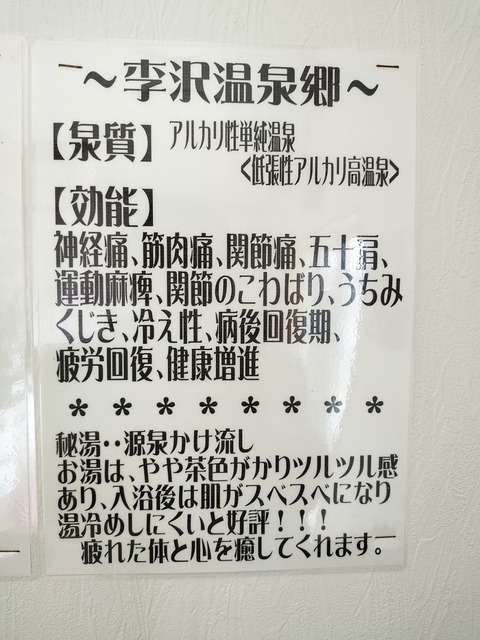 ～李沢温泉郷～
【泉質】アルカリ性単純温泉
<低張性アルカリ高温泉>
【効能】
神経痛、筋肉痛、関節痛、五十肩、
運動麻痺、関節のこわばり、うちみ
くじき、冷え性、病後回復期、
疲労回復、健康増進
＊＊＊＊＊＊＊＊
秘湯‥源泉かけ流し
お湯は、やや茶色がかりツルツル感
あり、入浴後は肌がスベスベになり
湯冷めしにくいと好評！！！
疲れた体と心を癒してくれます。